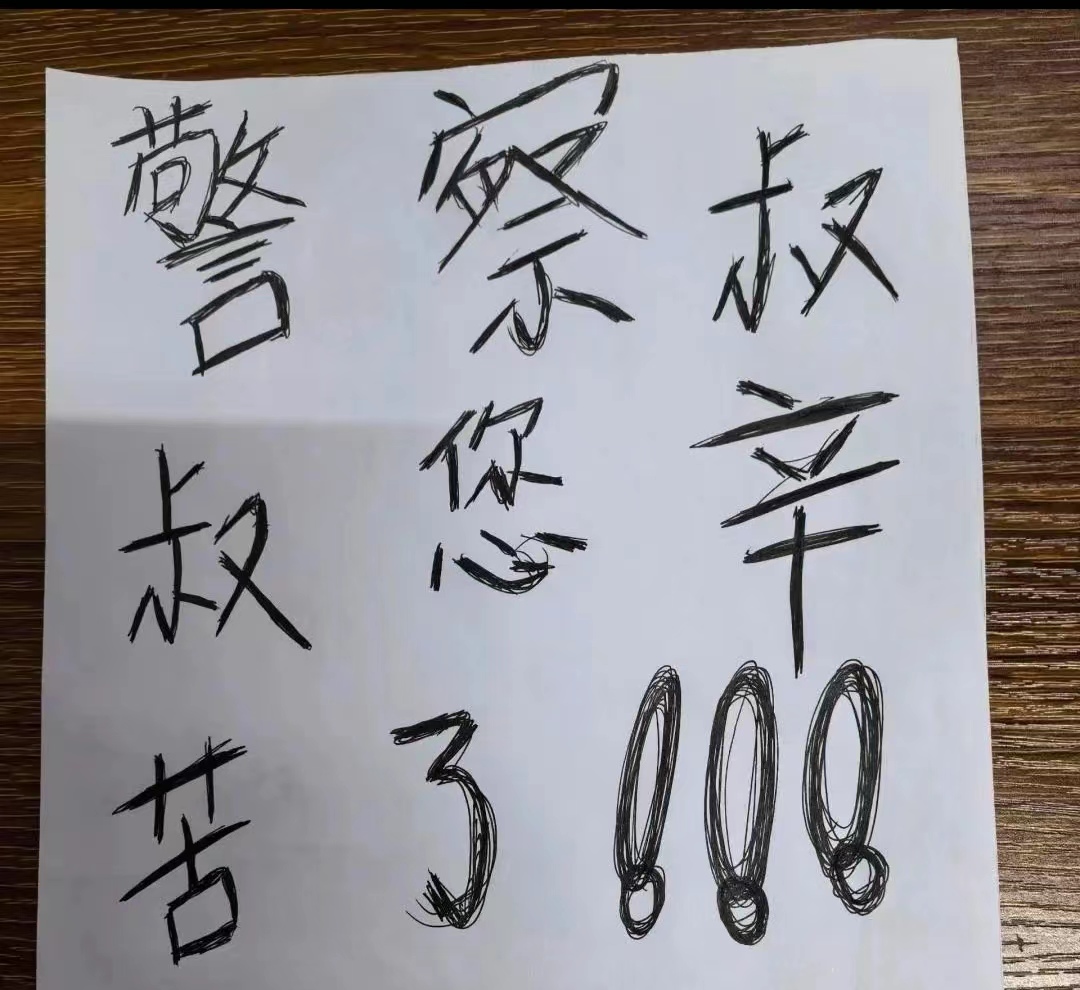 警察叔
叔您辛
苦了!!!